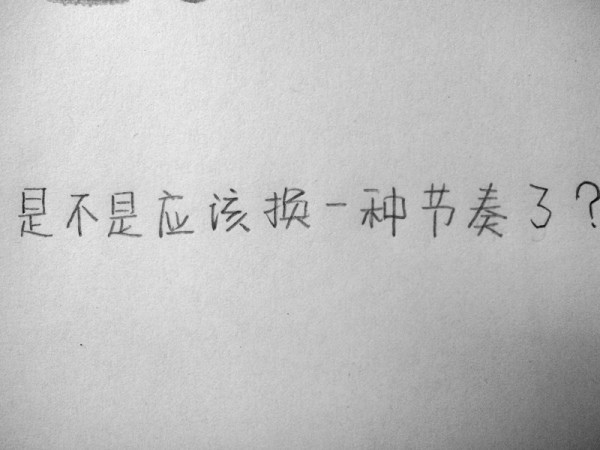 是不是应该损一种节奏了？